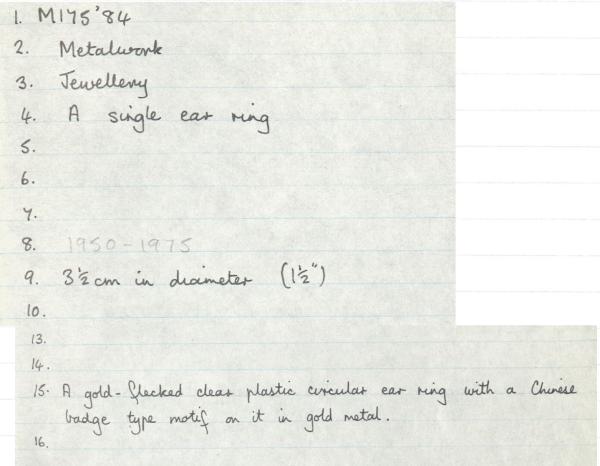 1. M175'84
2. Metalwork
3. Jewellery
4. A single ear ring
5.
6.
7.
8. 1950-1975
9. 3½cm in diameter (1½")
10.
13.
14.
15. A gold-flecked clear plastic circular ear ring with a Chinese
badge type motif on it in gold metal.
16.